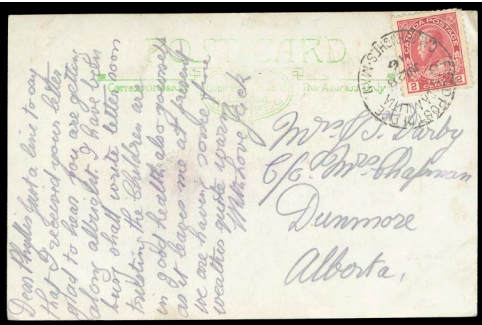 POST CARD
Correspondence
The Address Only
CANADA POSTAGE
2 2
FIELD POST OFFICE
CAMP HUGHES - MAN
Dear Phyllis Just a line to say
that I received your letter
glad to hear you are getting
along allright. I have been
busy shall write letter soon
trusting the Children are
in good health, also yourself
as it leaves me at present
we are having some fine
weather quite warm
With love Jack
Mrs. J. Darby
C/o. Mrs. Chapman
Dunmore
Alberta.